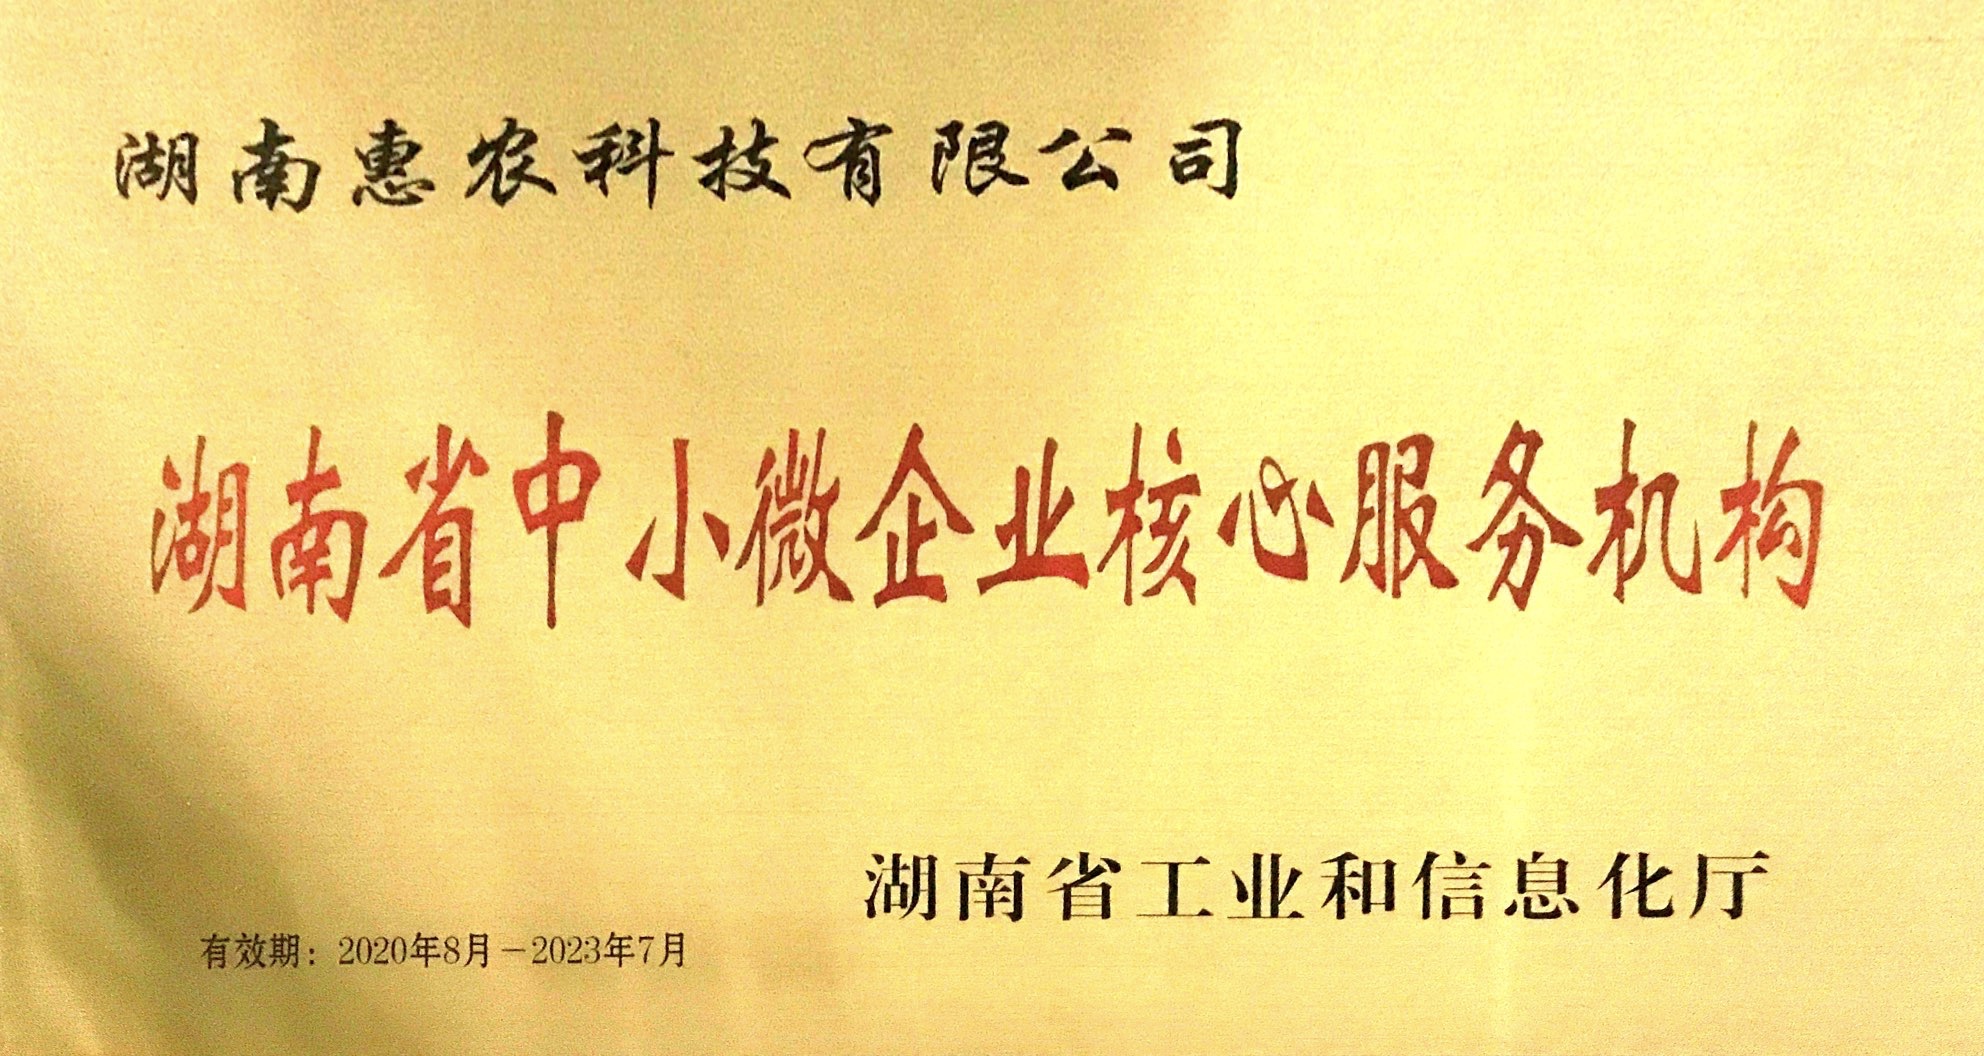 湖南惠农科技有限公司
湖南省中小微企业核心服务机构
湖南省工业和信息化厅
有效期：2020年8月－2023年7月